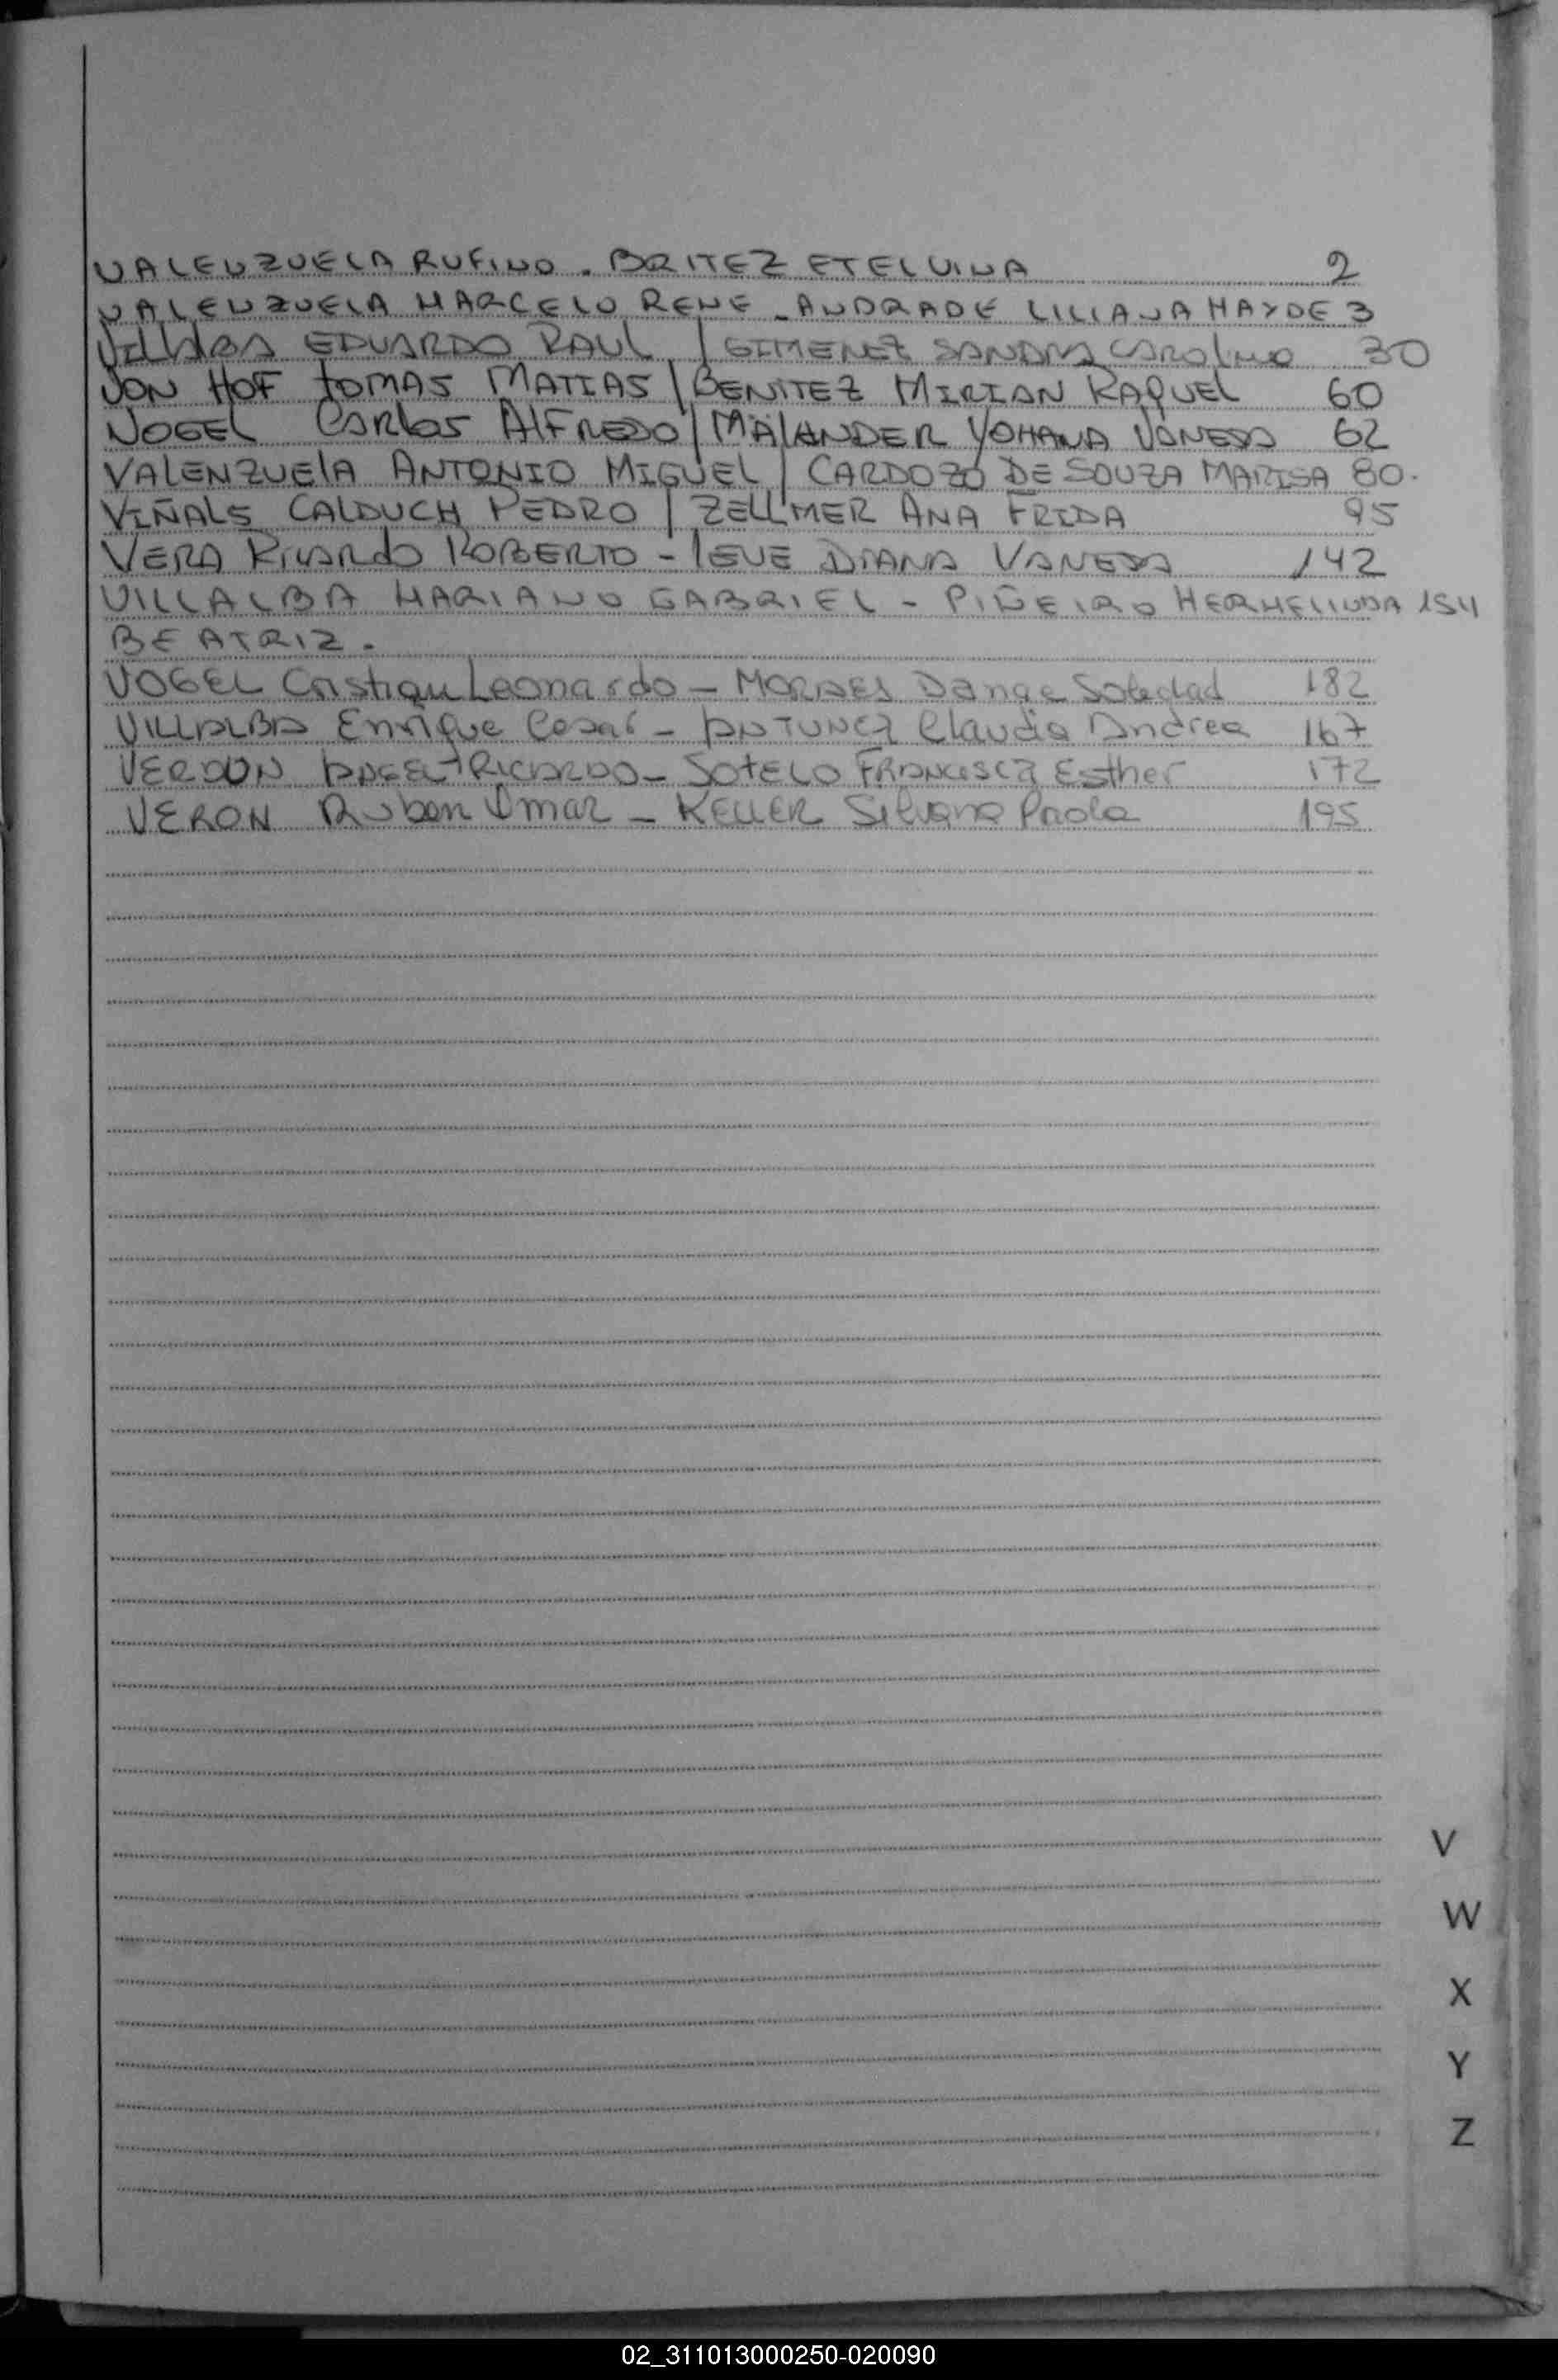 VALENZUELA RUFINO . BRITEZ ETELVINA 2
VALENZUELA MARCELO RENE - ANDRADE LILIANA HAYDE 3
VIllAlBA EDUARDO RAUL / GIMENEZ SANDRA CAROlINA 30
VON HOF tOMAS MATIAS / BENITEZ MIRIAN RAQUEL 60
VOGEL CARlos AlFREDO / MÄlANDER YOHANA VANESA 62
VALENZUElA ANTONIO MIGUEL / CARDOZO DE SOUZA MARISA 80.
VIÑALS CALDUCH PEDRO / ZELLMER ANA FRIDA 95
VERA RICARdO ROBERTO - IEUE DIANA VANESA 142
VILLALBA MARIANO GABRIEL - PIÑEIRO HERMELINDA 154
BEATRIZ.
VOGEL Cristian Leonardo - MORAES Soledad 182
VILLALBA Enrique Cesar - ANTUNEZ Claudia Andrea 167
VERDUN RICARDO - SOTELO FRANCISCA Esther 172
VERON Ruben Omar - KELLER Silvana Paola 195
V
W
X
Y
Z
02_311013000250-020090